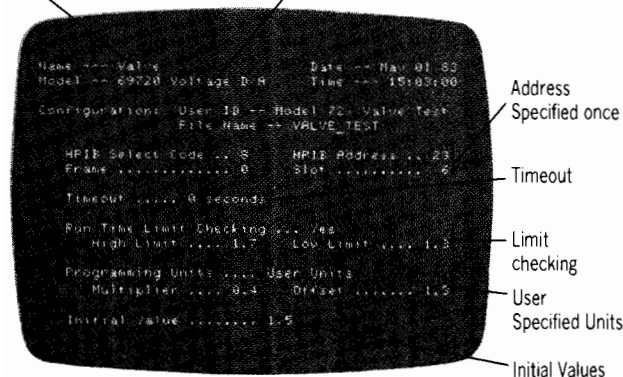 Name --- Valve Date -- May 01 83
Model -- 69720 Voltage D A Time --- 15:03:00
Configuration: User ID -- Model 72. Valve Test
File Name -- VALVE_TEST
HPIB Select Code .. 8 HPIB Address .. 23
Frame ............. 0 Slot .......... 6
Timeout ..... 0 seconds
Run Time Limit Checking ... Yes
High Limit .... 1.7 Low Limit .... 1.3
Programming Units .... User Units
Multiplier .... 0.4 Offset ....... 1.5
Initial Value ........ 1.5
Address
Specified once
Timeout
Limit
checking
User
Specified Units
Initial Values